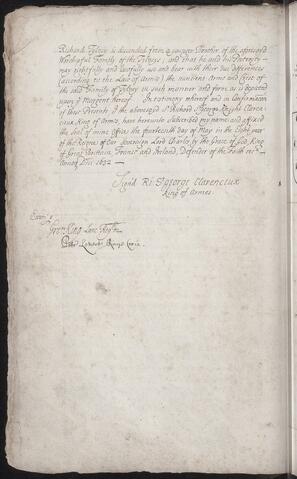 Richard Tolsey is descended from a younger Brother of the aforesaid
Worshipfull Family of the Tolseys; and that he and his Posterity
may rightfully and lawfully use and bear with their due differences
(according to the Law of Arms) the auncient Arms and Crest of
the said Family of Tolsey in such manner and form as is depicted
upon the Margent hereof. In testimony whereof and in confirmation
of these Presents I the abovesaid Sr Richard St George Knight Claren=
ceux King of Armes, have hereunto subscribed my name and affixed
the Seal of mine Office the fourteenth day of May in the Eight year
of the Reigne of Our Sovereign Lord Charles by the Grace of God, King
of Great Brittain, France and Ireland, Defender of the Faith etc.
Annoq Dni 1632 —
Signd Ri: St George Clarenceux
King of Armes.
King Lanc